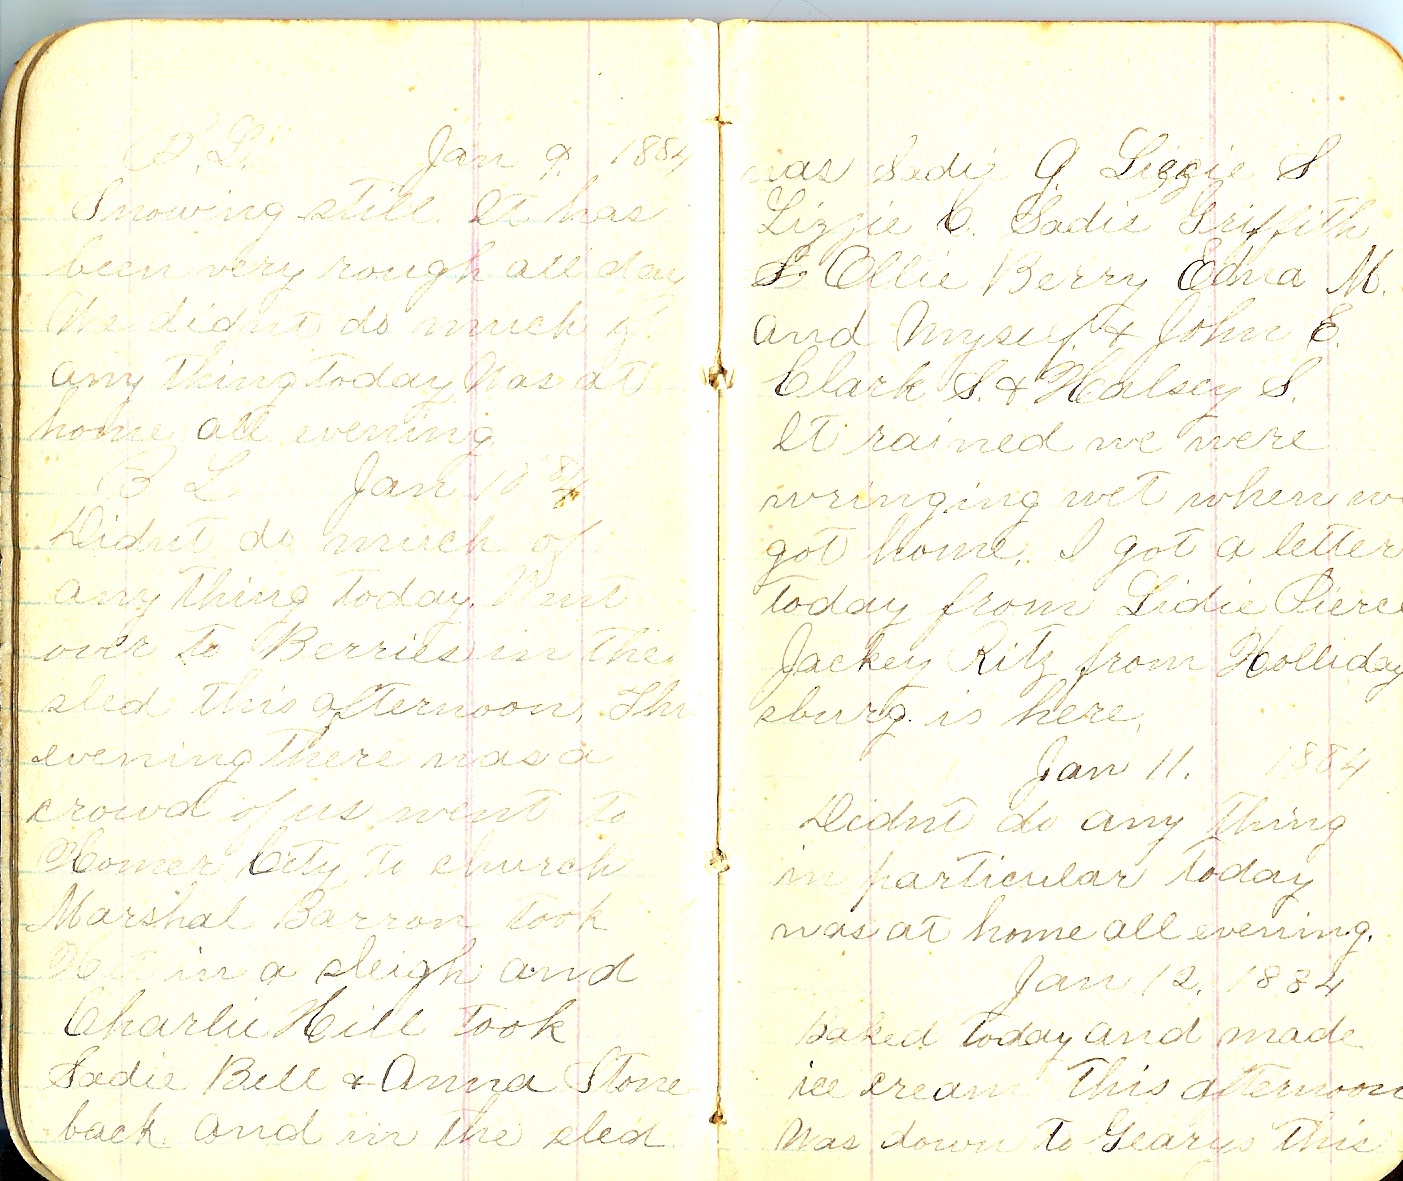 B. L. Jan 9. 1884
Snowing still. It has
been very rough all day
We didnt do much of
any thing today Was at
home all evening
B L Jan 10 84
Didnt do much of
any thing today. Went
over to Berries in the
sled this afternoon. This
evening there was a
crowd of us went to
Homer City to church
Marshal Barron took
in a sleigh and
Charlie Hill took
Sadie Bell & Anna Stone
back. and in the sled
was Sadie G Lizzie S
Lizzie C. Sadie Griffith
Ollie Berry Edna M.
and Myself & John E.
Clark S. & Halsey S.
It rained we were
wringing wet when we
got home. I got a letter
today from Lidie Pierce
Jackey Ritz from Holliday
sburg. is here.
Jan 11. 1884
Didnt do any thing
in particular today
was at home all evening.
Jan 12. 1884
Baked today and made
ice cream this afternoon
Was down to Gearys this